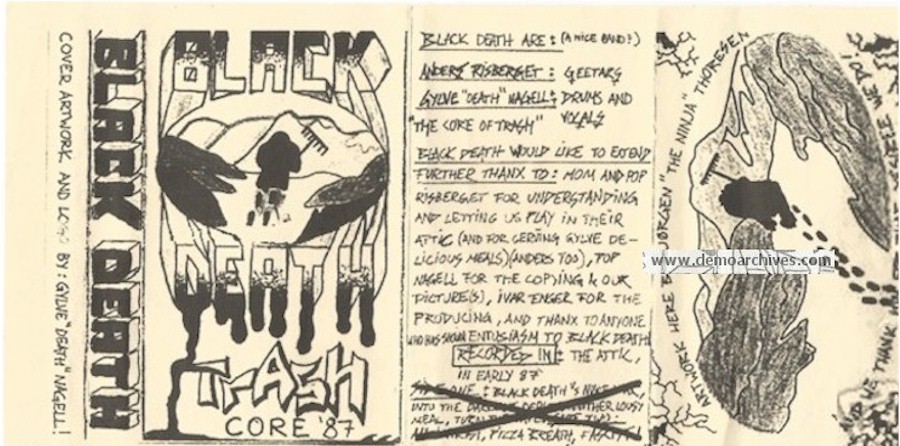 COVER ARTWORK AND LOGO BY: GYLVE "DEATH" NAGELL!
BLACK DEATH
BLACK
DEATH
TRASH
CORE '87
BLACK DEATH ARE: (A NICE BAND?)
ANDERS RISBERGET: GEETARS
GYLVE "DEATH" NAGELL: DRUMS AND
"THE CORE OF TRASH" VOCALS
BLACK DEATH WOULD LIKE TO EXTEND
FURTHER THANX TO: MOM AND POP
RISBERGET FOR UNDERSTANDING
AND LETTING US PLAY IN THEIR
ATTIC (AND FOR SERVING GYLVE DE-
LICIOUS MEALS)(ANDERS TOO), POP
NAGELL FOR THE COPYING & OUR
PICTURE(S), IVAR ENGER FOR THE
PRODUCING, AND THANX TO ANYONE
WHO HAS SHOWN ENTUSIASM TO BLACK DEATH
RECORDED IN: THE ATTIC,
IN EARLY 87
SIDE ONE: BLACK DEATH'S
INTO THE ANOTHER LOUSY
MEAL, TURN
PIZZA BREATH,
ARTWORK HERE BY JØRGEN "THE NINJA" THORESEN
AND HE THANK WE DO!
www.demoarchives.com